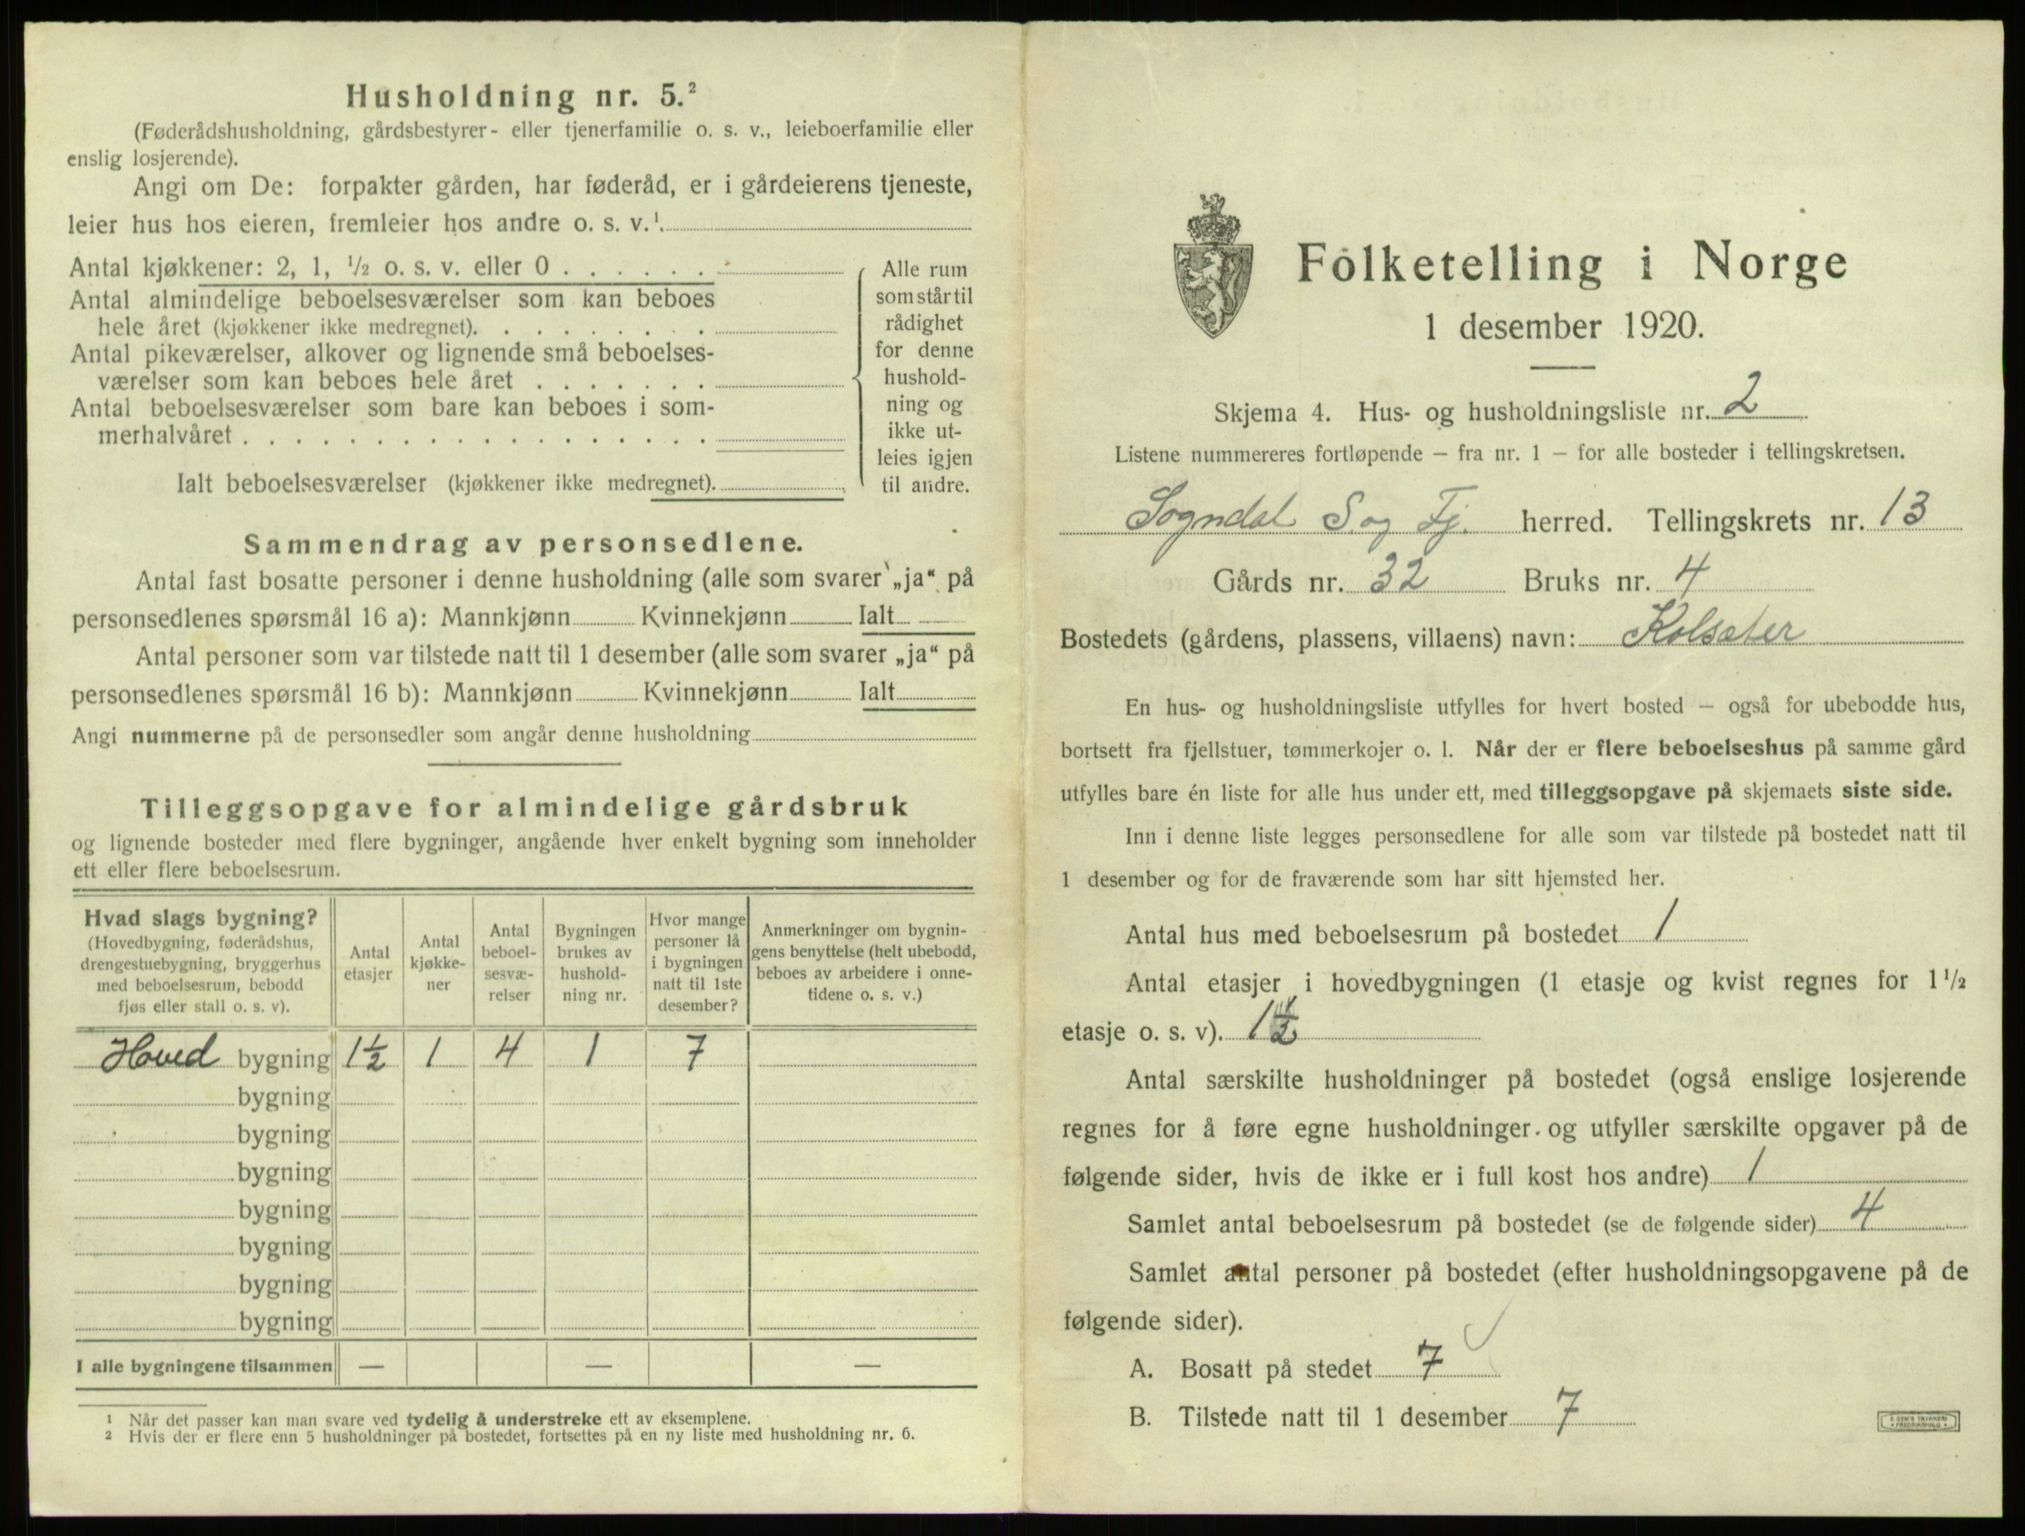 Husholdning nr. 5.²
(Føderådshusholdning, gårdsbestyrer- eller tjenerfamilie o. s. v., leieboerfamilie eller
enslig losjerende).
Angi om De: forpakter gården, har føderåd, er i gårdeierens tjeneste,
leier hus hos eieren, fremleier hos andre o. s. v.¹
Antal kjøkkener: 2, 1, ½ o. s. v. eller 0 . . . . . .
Antal almindelige beboelsesværelser som kan beboes
hele året (kjøkkener ikke medregnet). . . . . . . . .
Antal pikeværelser, alkover og lignende små beboelses-
værelser som kan beboes hele året . . . . . . .
Antal beboelsesværelser som bare kan beboes i som-
merhalvåret . . . . . . . . . . . . . . . . . .
Ialt beboelsesværelser (kjøkkener ikke medregnet).
Alle rum
som står til
rådighet
for denne
hushold-
ning og
ikke ut-
leies igjen
til andre.
Sammendrag av personsedlene.
Antal fast bosatte personer i denne husholdning (alle som svarer „ja“ på
personsedlenes spørsmål 16 a): Mannkjønn Kvinnekjønn Ialt
Antal personer som var tilstede natt til 1 desember (alle som svarer „ja“ på
personsedlenes spørsmål 16 b): Mannkjønn Kvinnekjønn Ialt
Angi nummerne på de personsedler som angår denne husholdning
Tilleggsopgave for almindelige gårdsbruk
og lignende bosteder med flere bygninger, angående hver enkelt bygning som inneholder
ett eller flere beboelsesrum.
Hvad slags bygning?
(Hovedbygning, føderådshus,
drengestuebygning, bryggerhus
med beboelsesrum, bebodd
fjøs eller stall o. s. v).
Antal
etasjer
Antal
kjøkke-
ner
Antal
beboel-
sesvæ-
relser
Bygningen
brukes av
hushold-
ning nr.
Hvor mange
personer lå
i bygningen
natt til 1ste
desember?
Anmerkninger om bygnin-
gens benyttelse (helt ubebodd,
beboes av arbeidere i onne-
tidene o. s. v.)
Hoved bygning 1½ 1 4 1 7
bygning
bygning
bygning
bygning
bygning
bygning
bygning
I alle bygningene tilsammen — — —
¹ Når det passer kan man svare ved tydelig å understreke ett av eksemplene.
² Hvis der er flere enn 5 husholdninger på bostedet, fortsettes på en ny liste med husholdning nr. 6.
Folketelling i Norge
1 desember 1920.
Skjema 4. Hus- og husholdningsliste nr. 2
Listene nummereres fortløpende – fra nr. 1 – for alle bosteder i tellingskretsen.
Sogndal S. og Fj. herred. Tellingskrets nr. 13
Gårds nr. 32 Bruks nr. 4
Bostedets (gårdens, plassens, villaens) navn: Kolsæter
En hus- og husholdningsliste utfylles for hvert bosted – også for ubebodde hus,
bortsett fra fjellstuer, tømmerkojer o. l. Når der er flere beboelseshus på samme gård
utfylles bare én liste for alle hus under ett, med tilleggsopgave på skjemaets siste side.
Inn i denne liste legges personsedlene for alle som var tilstede på bostedet natt til
1 desember og for de fraværende som har sitt hjemsted her.
Antal hus med beboelsesrum på bostedet 1
Antal etasjer i hovedbygningen (1 etasje og kvist regnes for 1½
etasje o. s. v). 1½
Antal særskilte husholdninger på bostedet (også enslige losjerende
regnes for å føre egne husholdninger og utfyller særskilte opgaver på de
følgende sider, hvis de ikke er i full kost hos andre) 1
Samlet antal beboelsesrum på bostedet (se de følgende sider) 4
Samlet antal personer på bostedet (efter husholdningsopgavene på de
følgende sider).
A. Bosatt på stedet 7
B. Tilstede natt til 1 desember 7